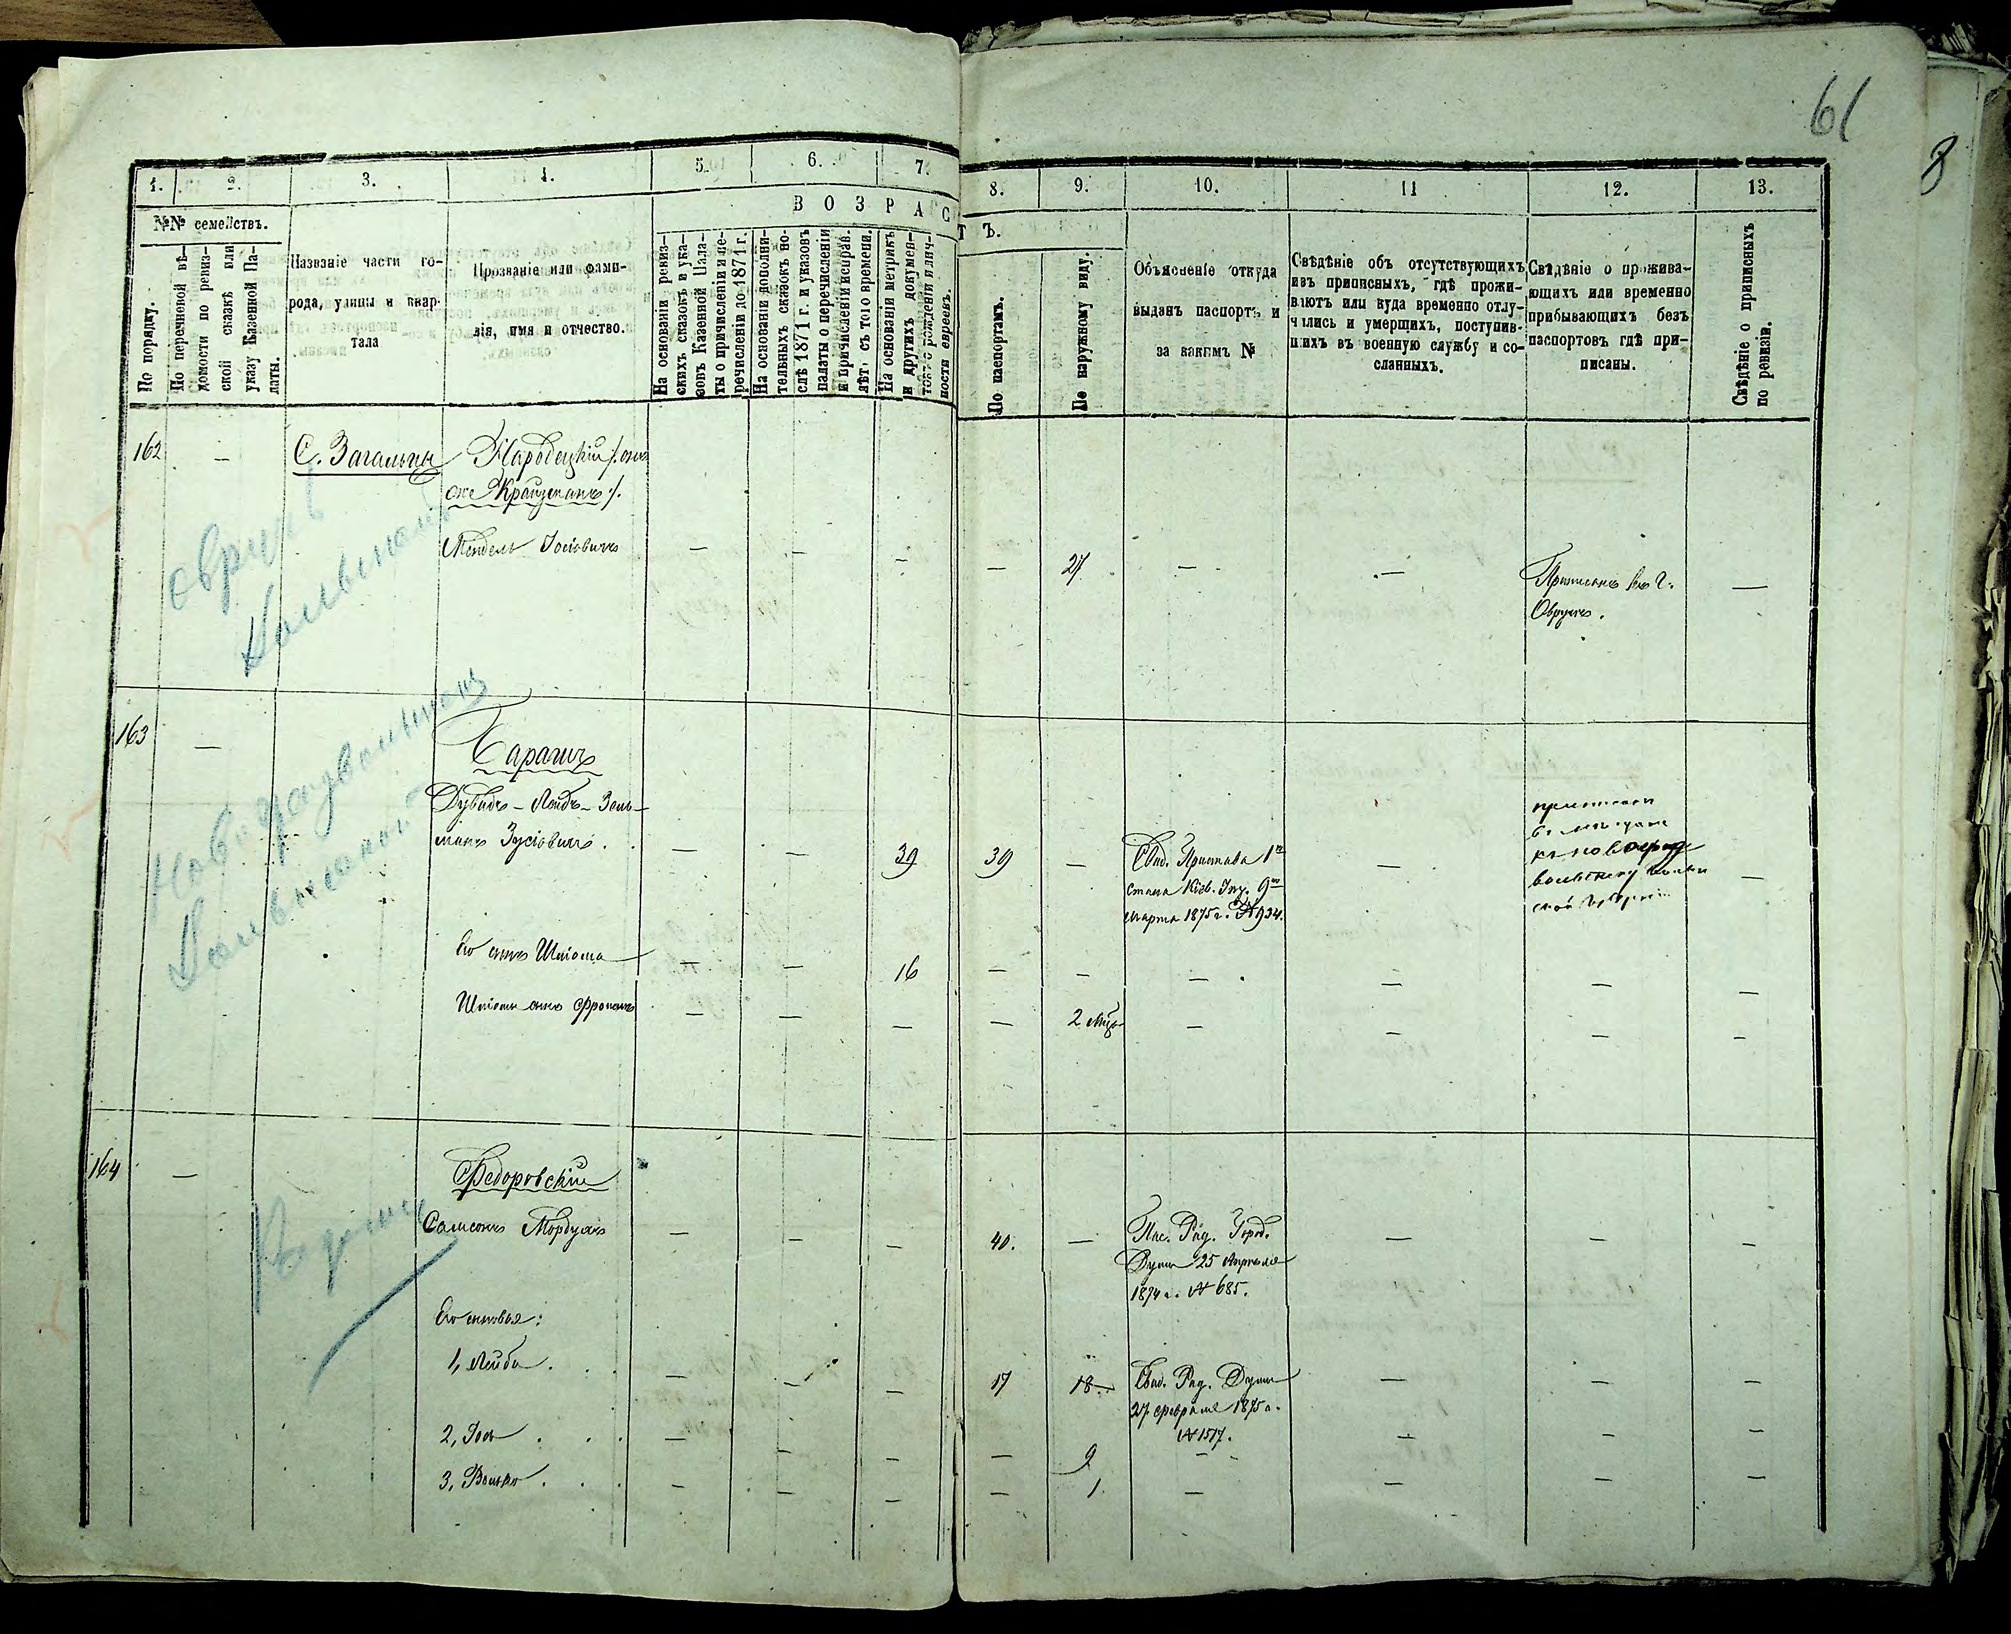 61
8
1.
2.
3.
4.
5.
6.
7.
8.
9.
10.
11
12.
13.
№№ семействъ.
ВОЗРАС
ТЪ.
По порядку.
По перечневой вѣ-
домости по ревиз-
ской сказкѣ или
указу Казенной Па-
латы.
Названіе части го-
рода, улицы и квар-
тала
Прозваніе или фами-
лія, имя и отчество.
На основаніи ревиз-
скихъ сказокъ и ука-
зовъ Казенной Пала-
ты о причисленіи и пе-
речисленіи до 1871 г.
На основаніи дополни-
тельныхъ сказокъ по-
слѣ 1871 г. и указовъ
палаты о перечисленіи
и причисленіи исправ.
лѣт. съ того времени.
На основаніи метрикъ
и другихъ докумен-
товъ о рожденіи и лич-
ности евреевъ.
По паспортамъ.
По наружному виду.
Объясненіе откуда
выданъ паспортъ и
за какимъ №
Свѣдѣніе объ отсутствующихъ
изъ приписныхъ, гдѣ прожи-
ваютъ или куда временно отлу-
чились и умершихъ, поступив-
шихъ въ военную службу и со-
сланныхъ.
Свѣдѣніе о прожива-
ющихъ или временно
прибывающихъ безъ
паспортовъ гдѣ при-
писаны.
Свѣдѣніе о приписныхъ
по ревизіи.
162 — С. Загальцы Народецкій /: онъ
же Крайзманъ :/.
Мендель Іосіовичъ — — — — 27 — — Приписанъ въ г. —
Овручъ.
овруч
Волынской
163 — Барашъ
Дувидъ-Лейбъ-Зель-
манъ Зусіовичъ. — — 39 39 — Свид. Пристава 1го
стана Кіев. 9го
марта 1875 г. № 934. —
приписанъ
къ новоград
волынску волын
ской губерніи —
Новоградволынск
Волынской
Его сынъ Шліома — — 16 — — — — — —
Шліомы сынъ Фроимъ — — — — 2 мѣс. — — — —
164 — Федоровскій
Самсонъ Мордуховъ — — — 40. — Пас. Рад. Город.
Думы 25 Апреля
1874 г. № 685. — — —
Радомы
Его сыновья:
1, Лейба . . — — — 17 18 Свид. Рад. Думы
27 февраля 1875 г.
№ 1517. — — —
2, Іось . . . — — — — 9 — — — —
3, Волько . . . — — — — 1 — — — —